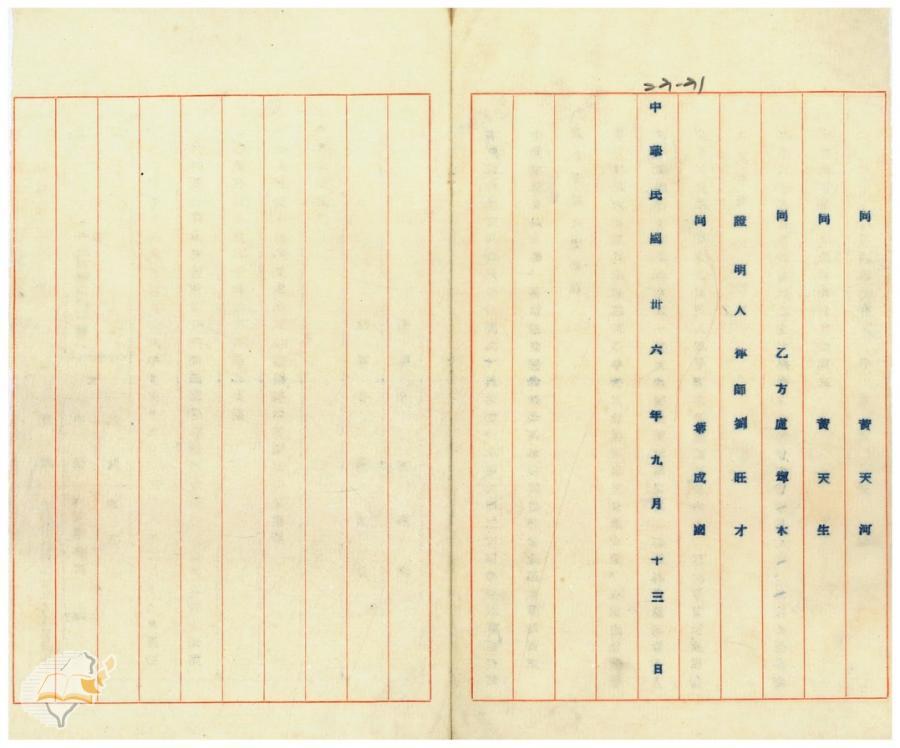 同 黄天河
同 黄天生
同 乙方盧輝木
證明人律師劉旺才
同 葉成國
中華民國卅六年九月十三日